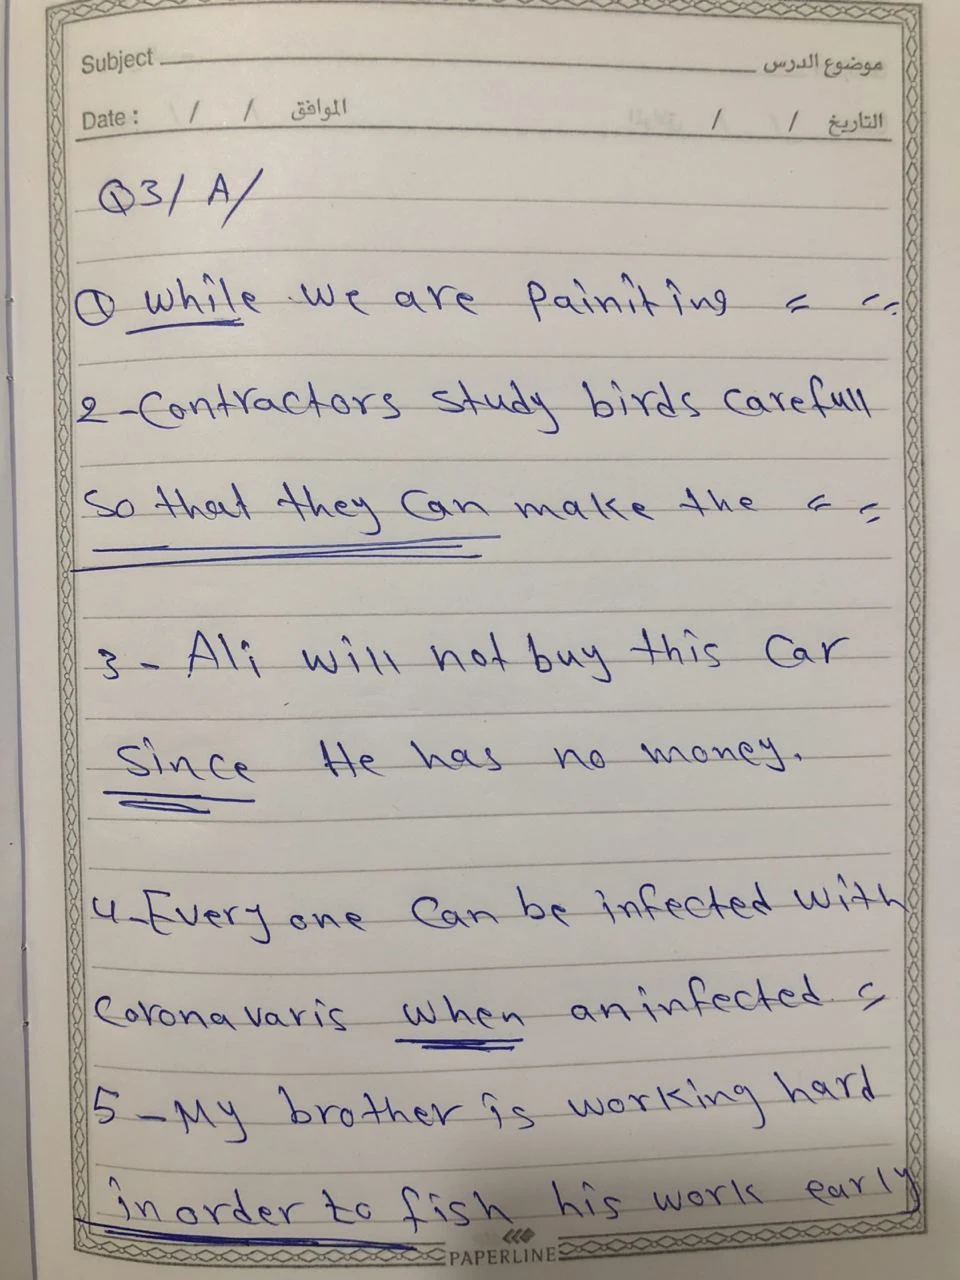 Subject موضوع الدرس
Date : / / الموافق / / التاريخ
Q3/ A/
① while we are Painiting = =
2-Contractors study birds carefull
So that they Can make the = =
3 - Ali will not buy this Car
Since He has no money.
4-Every one Can be infected with
Coronavaris when an infected =
5-My brother is working hard
in order to fish his work early
PAPERLINE